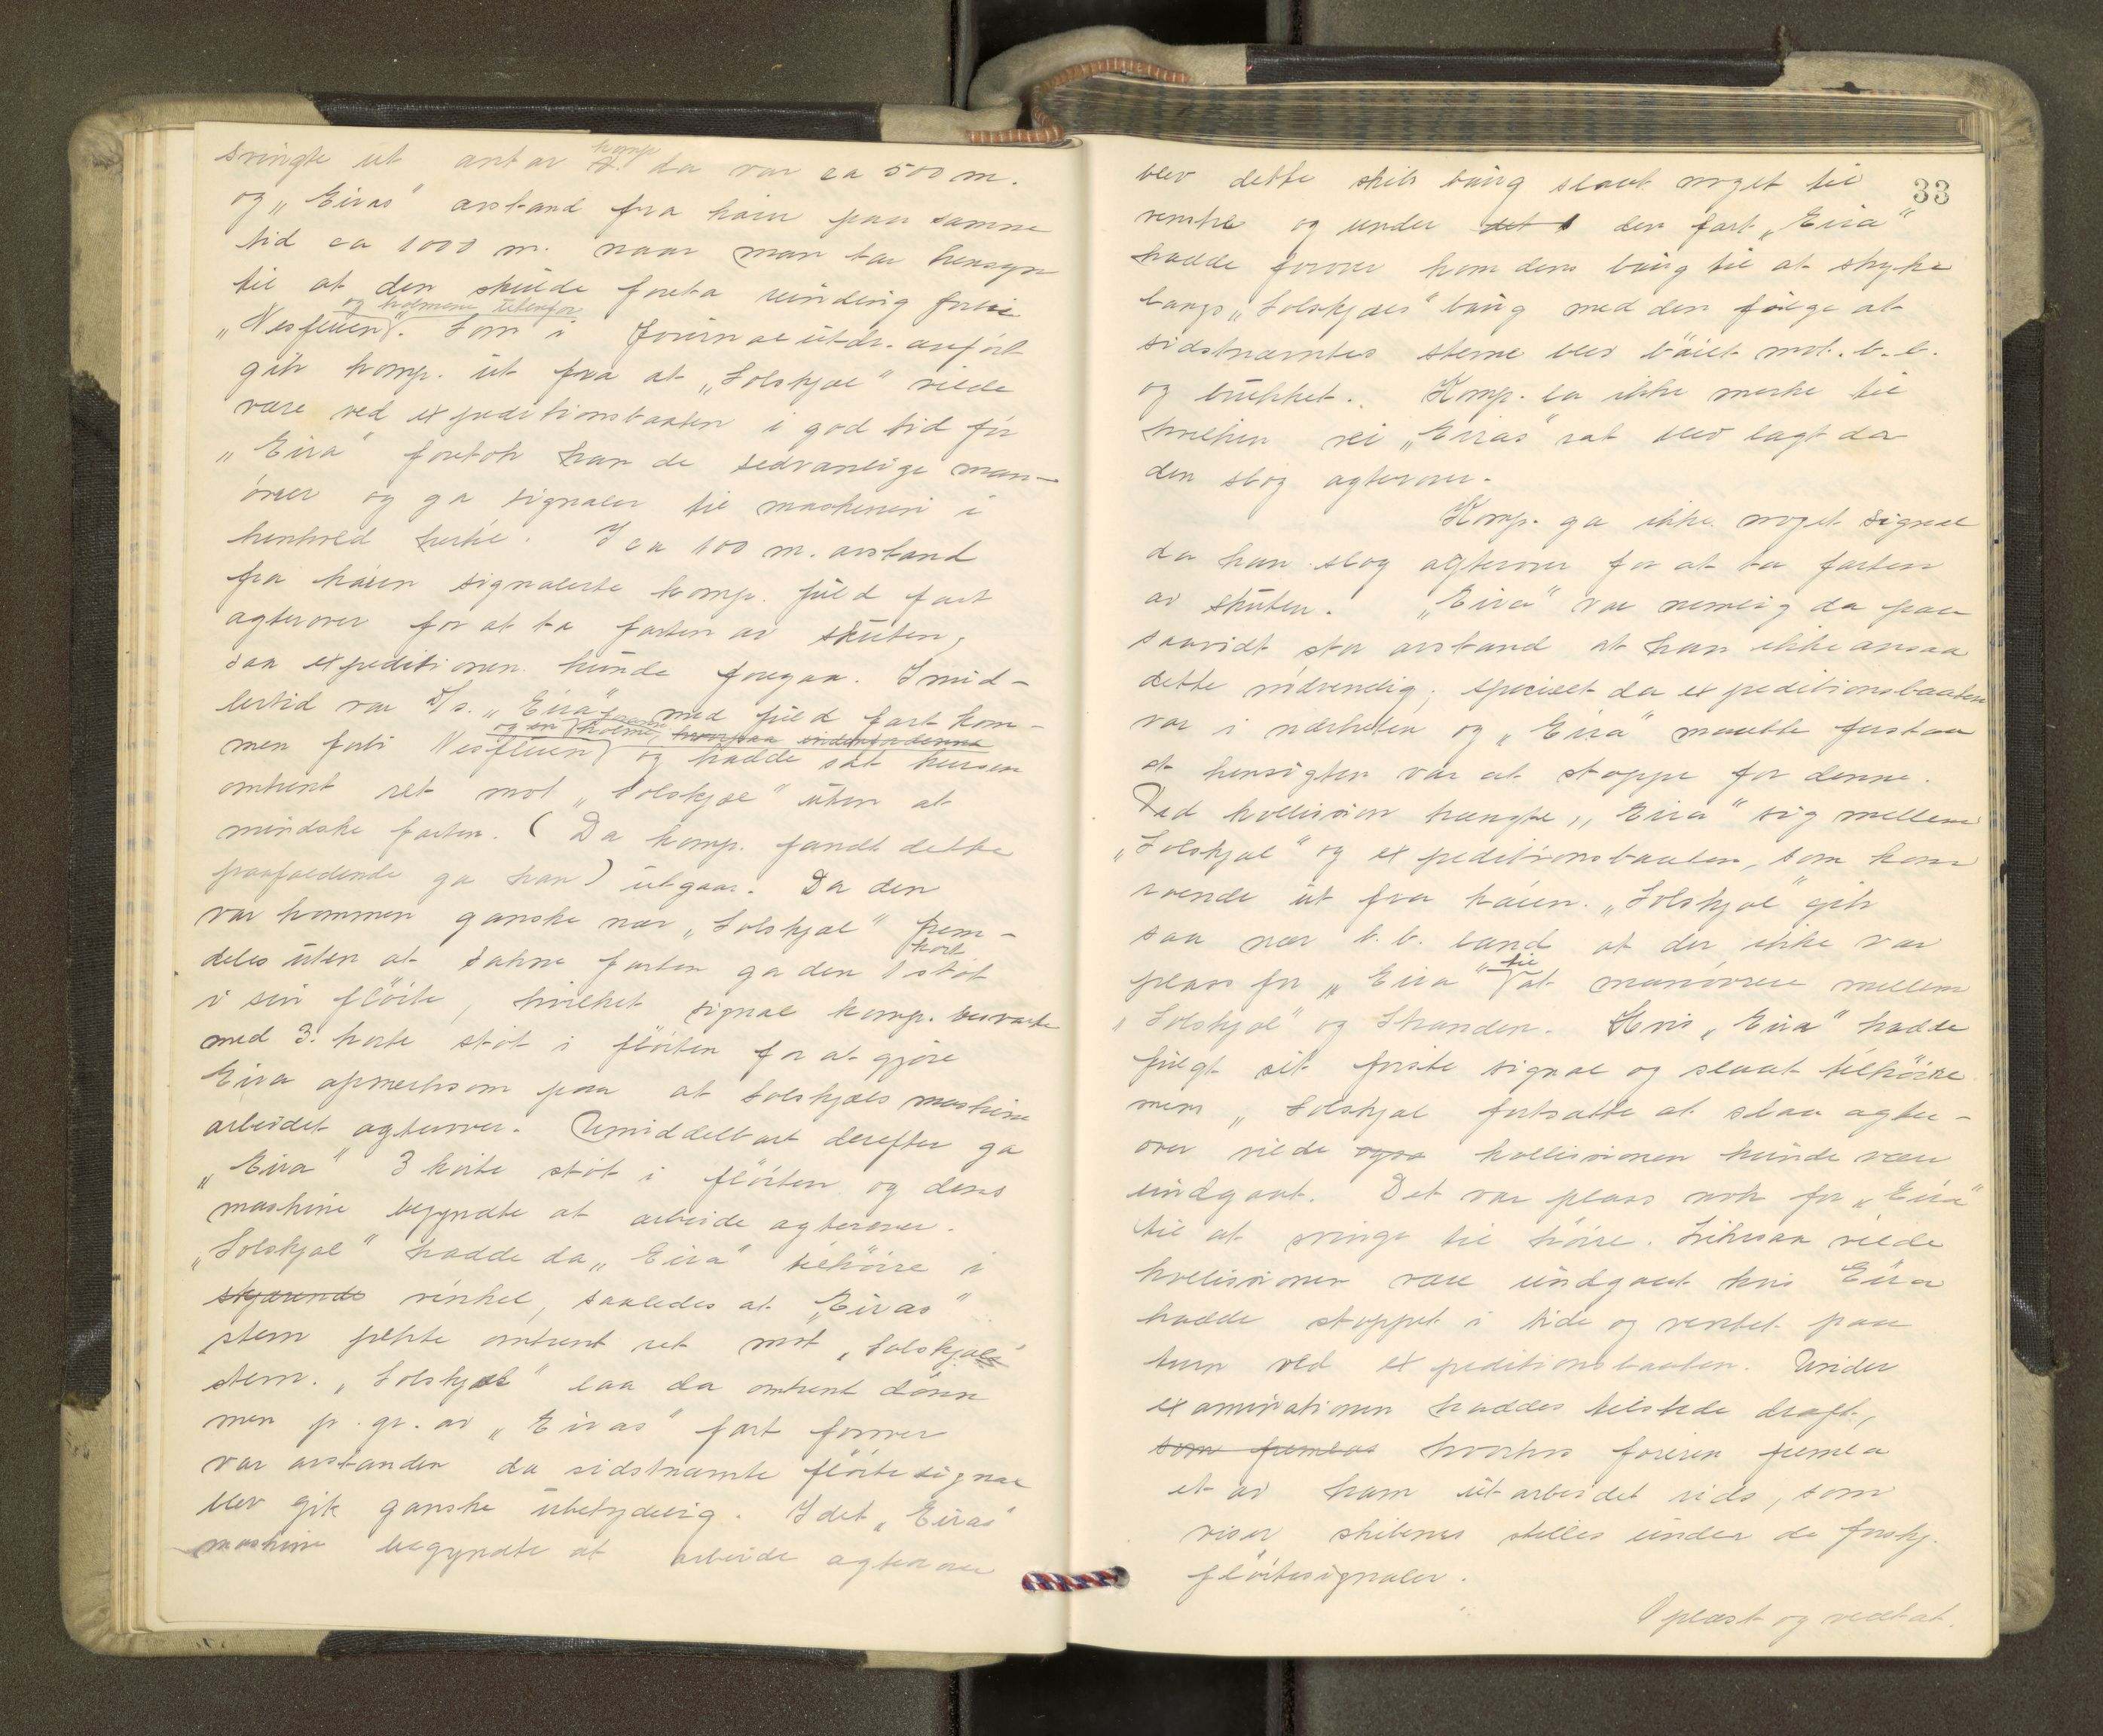 svingte ut antar komp. da var ca 500 m.
og „Eiras" avstand fra kaien paa samme
tid ca 1000 m. naar man tar hensyn
til at den skulde foreta runding forbi
og holmene utenfor
„Nesfluen". Som i Journalutdr. anført
gik komp. ut fra at „Solskjæl" vilde
være ved expeditionsbaaten i god tid før
„Eira" foretok han de sedvanlige man-
øvrer og ga signaler til maskineri i
henhold hertil. I ca 100 m. avstand
fra kaien signalerte komp. fuld fart
agterover for at ta farten av skuten,
saa expeditionen kunde foregaa. Imid-
lertid var D/s. „Eira" med fuld fart kom-
og en holme, hvorpaa
men forbi Nesfluen og hadde sat kursen
omtrent ret mot „Solskjæl" uten at
mindske farten. (Da komp. fandt dette
paafaldende ga han) utgaar. Da den
var kommen ganske nær „Solskjæl" frem-
deles uten at sakne farten ga den 1 kort støt
i sin fløite, hvilket signal komp. besvarte
med 3. korte støt i fløiten for at gjøre
Eira opmerksom paa at Solskjæls maskine
arbeidet agterover. Umiddelbart derefter ga
„Eira" 3 korte støt i fløiten og dens
maskine begyndte at arbeide agterover.
„Solskjæl" hadde da „Eira" tilhøire i
skjærende vinkel, saaledes at „Eiras"
stem pekte omtrent ret mot „Solskjæls"
stem. „Solskjæl" laa da omtrent dønn
men p. gr. av „Eiras" fart forover
var avstanden da sidstnævnte fløitesignal
blev gik ganske ubetydelig. Idet „Eiras"
maskine begyndte at arbeide agterover
33
blev dette skibs baug slaat noget til
venstre og under det den fart „Eira"
hadde forover kom dens baug til at stryke
langs „Solskjæls" baug med den følge at
sidstnævntes stevne blev bøiet mot b.b.
og brukket. Komp. la ikke merke til
hvilken vei „Eiras" rat blev lagt da
den slog agterover.
Komp. ga ikke noget signal
da han slog agterover for at ta farten
av skuten. „Eira" var nemlig da paa
saavidt stor avstand at han ikke ansaa
dette nødvendig, specielt da expeditionsbaaten
var i nærheten og „Eira" maatte forstaa
at hensigten var at stoppe for denne.
Ved kollision trængte „Eira" sig mellem
„Solskjæl" og expeditionsbaaten, som kom
roende ut fra kaien. „Solskjæl" gik
saa nær b.b. land at der ikke var
plass for „Eira" til at manøvrere mellem
„Solskjæl" og Stranden. Hvis „Eira" hadde
fulgt sit første signal og slaat tilhøire
men „Solskjæl fortsatte at slaa agter-
over vilde ogsa kollisionen kunde være
undgaat. Det var plass nok for „Eira"
til at svinge til høire. Likesaa vilde
kollisionen være undgaat hvis Eira
hadde stoppet i tide og ventet paa
turn ved expeditionsbaaten. Under
examinationen haddes tilstede draft,
som fremlas hvorhos føreren fremla
et av ham utarbeidet rids, som
viser skibenes stilles under de forskj.
fløitesignaler.
Oplæst og vedtat.